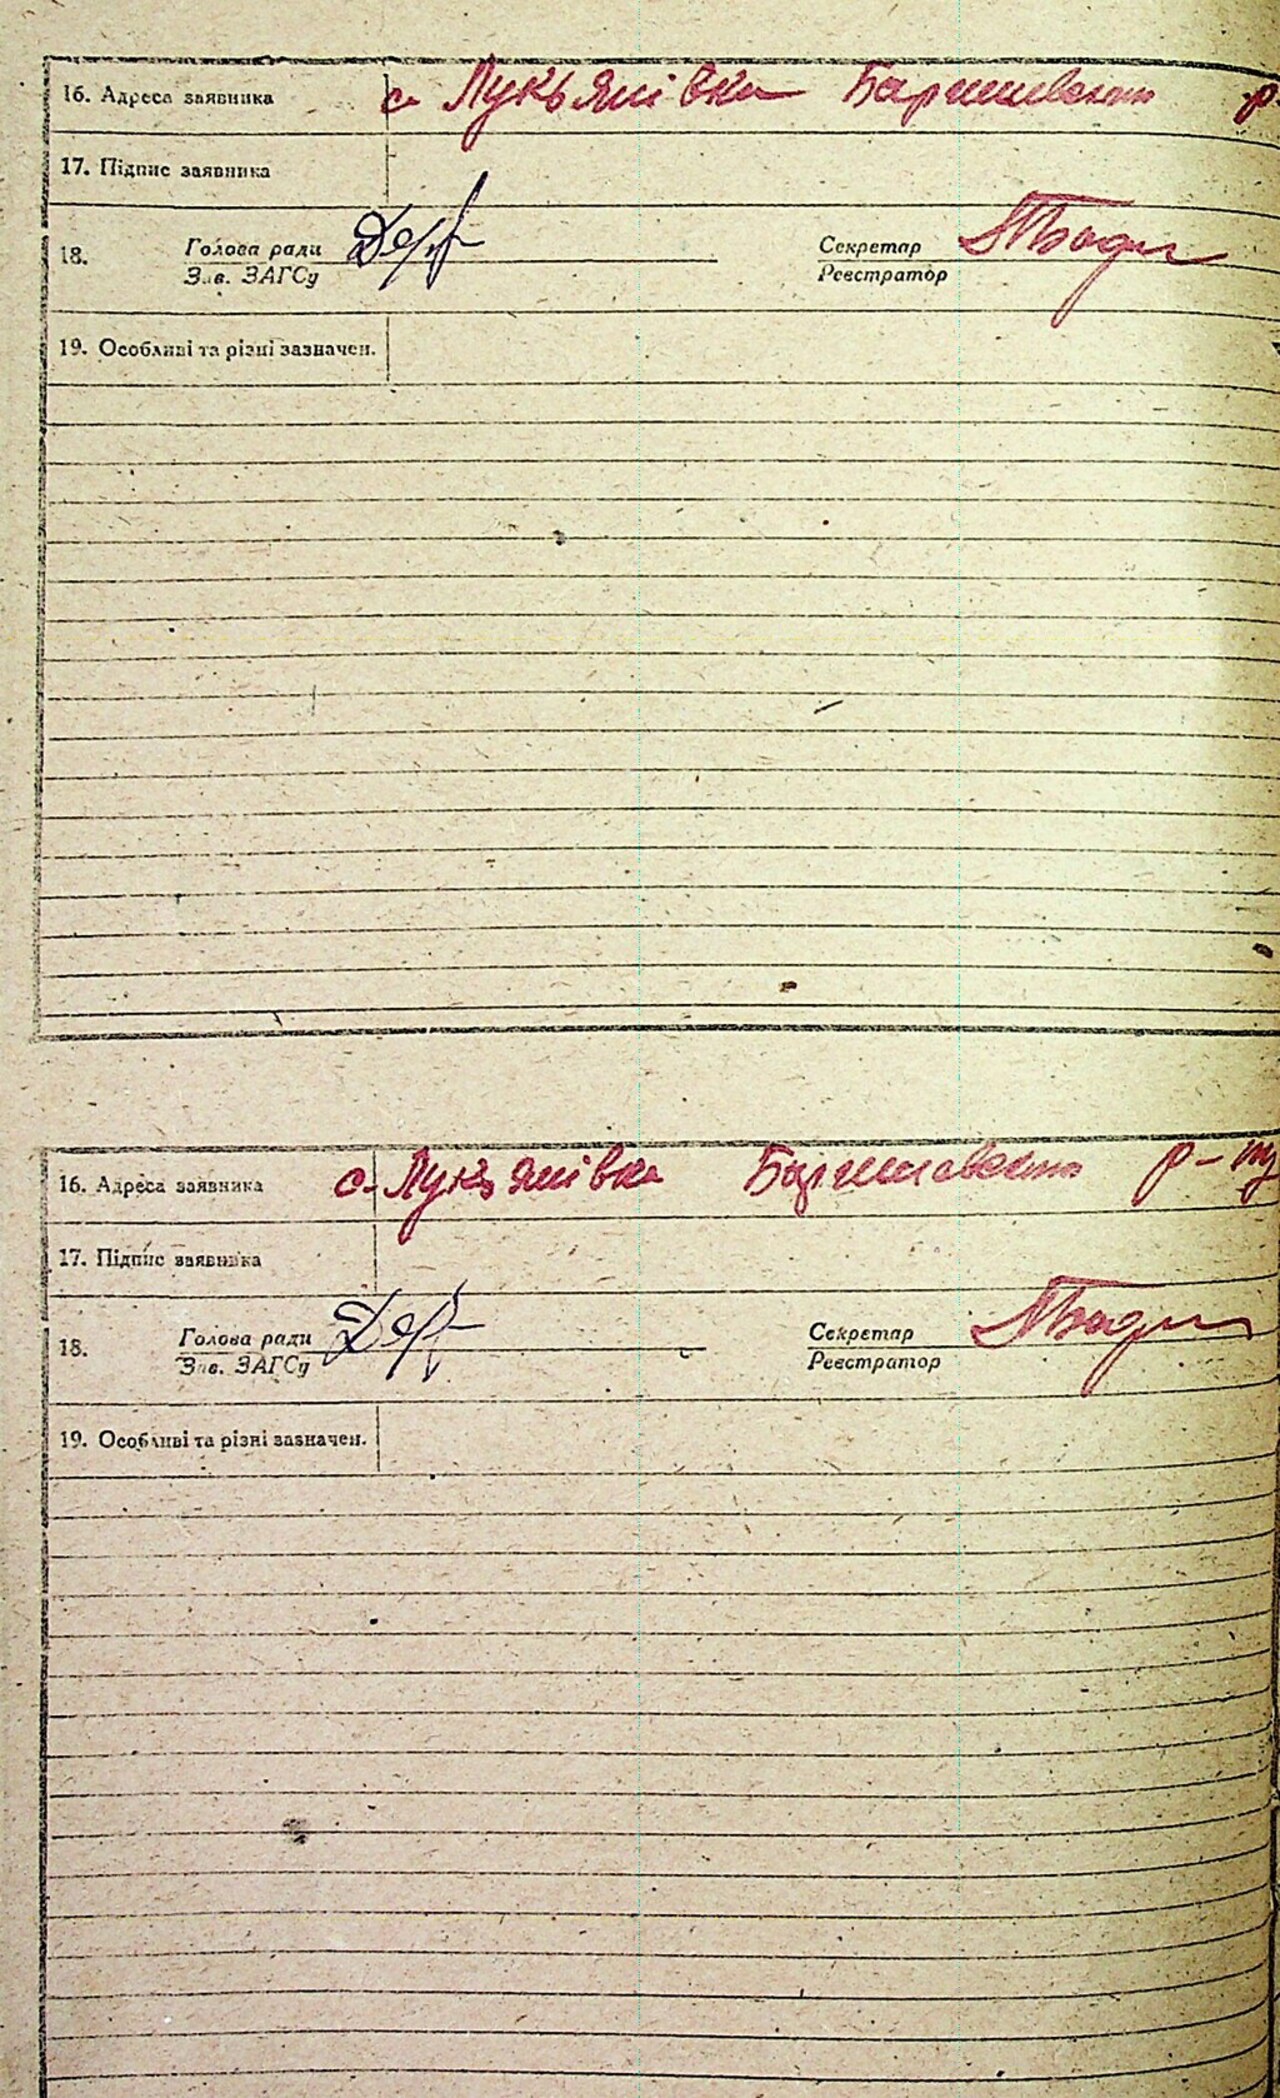 16. Адреса заявника с. Лукьянівка Баришевского р-
17. Підпис заявника
18. Голова ради Секретар
Зав. ЗАГСу Реєстратор
19. Особливі та різні зазначен.
16. Адреса заявника с. Лукъянівка Баришевского р-ну
17. Підпис заявника
18. Голова ради Секретар
Зав. ЗАГСу Реєстратор
19. Особливі та різні зазначен.